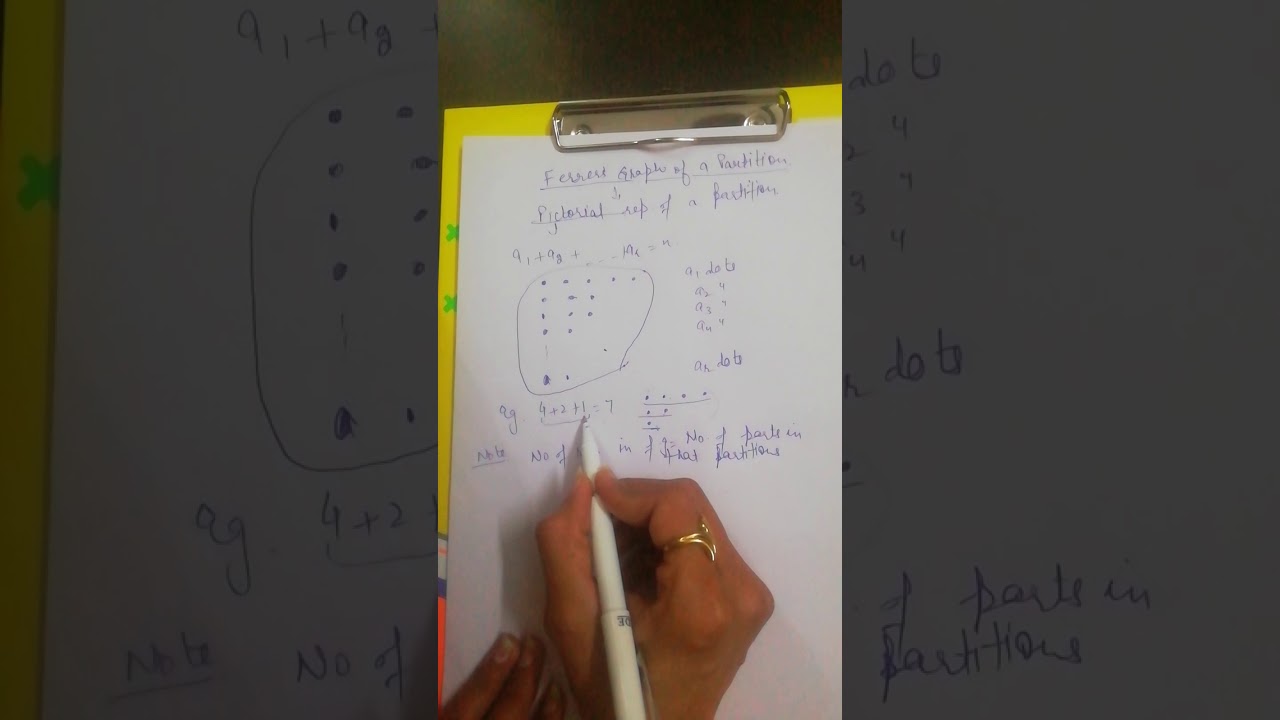 Ferrers Graph of a Partition
Pictorial rep of a partition
a1 + a2 + ... + ar = n
a1 dots
a2 "
a3 "
a4 "
ar dots
eg. 4+2+1 = 7
Note No of in f.g = No of parts in
that partitions